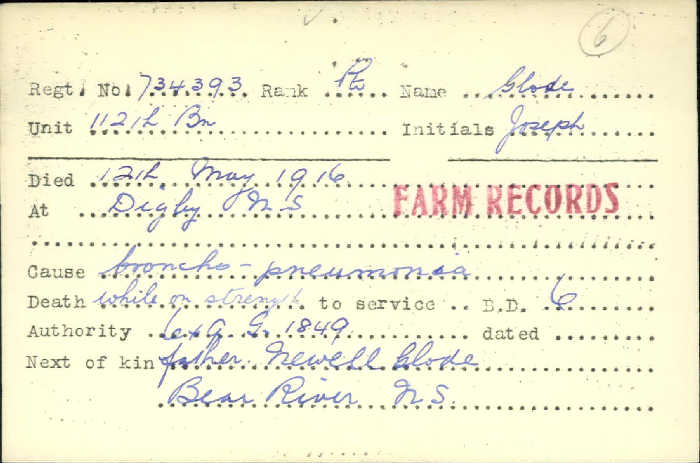 6
Regt. No. 734393 Rank Pte Name Glode
Unit 112th Bn Initials Joseph
Died 12th May 1916
At Digby N S FARM RECORDS
Cause broncho-pneumonia
Death while on strength to service B.D. 6
Authority G. 1849 dated
Next of kin father Newell Glode
Bear River N.S.